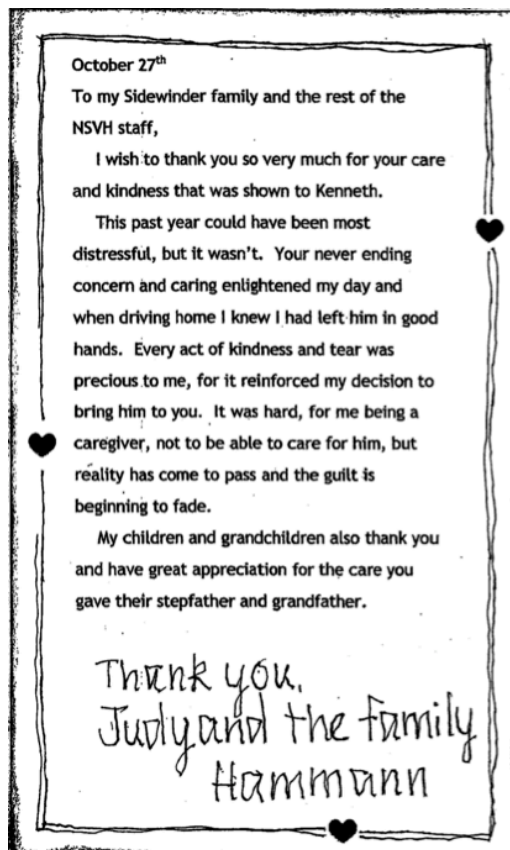 October 27th
To my Sidewinder family and the rest of the
NSVH staff,
I wish to thank you so very much for your care
and kindness that was shown to Kenneth.
This past year could have been most
distressful, but it wasn't. Your never ending
concern and caring enlightened my day and
when driving home I knew I had left him in good
hands. Every act of kindness and tear was
precious to me, for it reinforced my decision to
bring him to you. It was hard, for me being a
caregiver, not to be able to care for him, but
reality has come to pass and the guilt is
beginning to fade.
My children and grandchildren also thank you
and have great appreciation for the care you
gave their stepfather and grandfather.
Thank you,
Judy and the family
Hammann